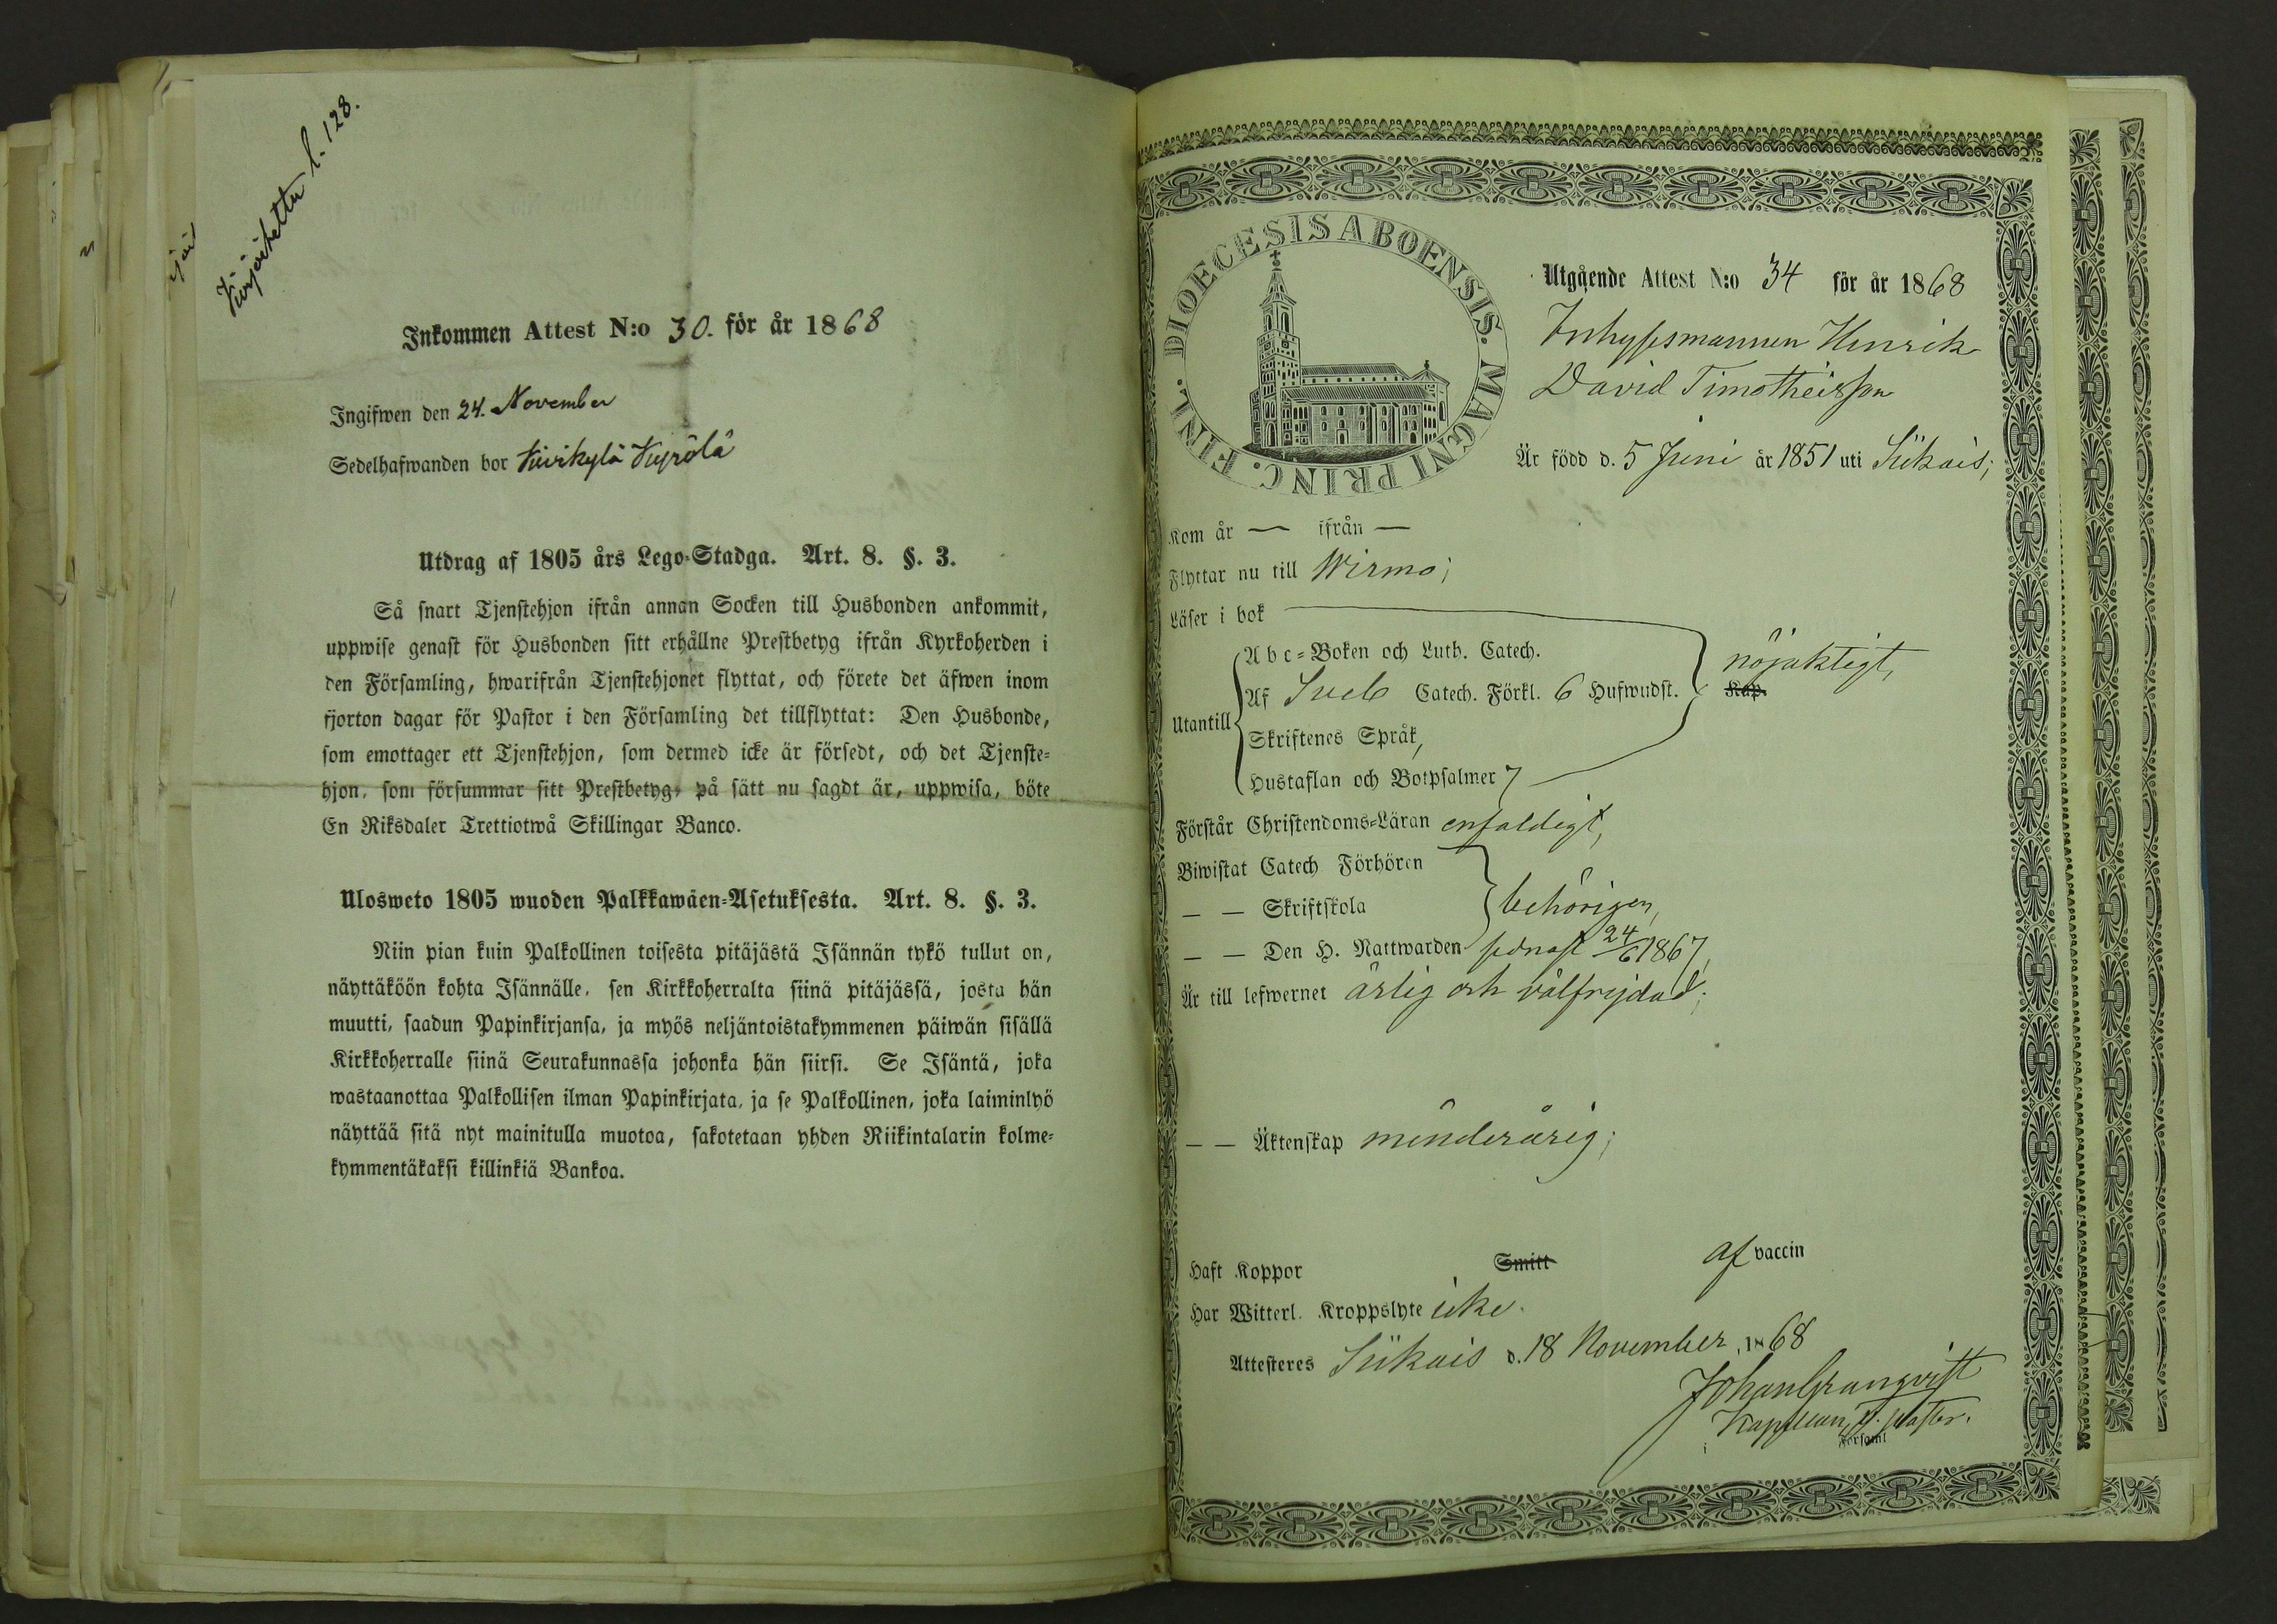 Kirjoitettu l. 128.
Inkommen Attest N:o 30. för år 1868
Ingifwen den 24. November
Sedelhafwanden bor Kivikylä Kyrölä
Utdrag af 1805 års Lego-Stadga. Art. 8. §. 3.
Så snart Tjenstehjon ifrån annan Socken till Husbonden ankommit,
uppwise genast för Husbonden sitt erhållne Prestbetyg ifrån Kyrkoherden i
den Församling, hwarifrån Tjenstehjonet flyttat, och förete det äfwen inom
fjorton dagar för Pastor i den Församling det tillflyttat: Den Husbonde,
som emottager ett Tjenstehjon, som dermed icke är försedt, och det Tjenste-
hjon, som försummar sitt Prestbetyg, på sätt nu sagdt är, uppwisa, böte
En Riksdaler Trettiotwå Skillingar Banco.
Ulosweto 1805 wuoden Palkkawäen-Asetuksesta. Art. 8. §. 3.
Niin pian kuin Palkollinen toisesta pitäjästä Isännän tykö tullut on,
näyttäköön kohta Isännälle, sen Kirkkoherralta siinä pitäjässä, josta hän
muutti, saadun Papinkirjansa, ja myös neljäntoistakymmenen päiwän sisällä
Kirkkoherralle siinä Seurakunnassa johonka hän siirsi. Se Isäntä, joka
wastaanottaa Palkollisen ilman Papinkirjata, ja se Palkollinen, joka laiminlyö
näyttää sitä nyt mainitulla muotoa, sakotetaan yhden Riikintalarin kolme-
kymmentäkaksi killinkiä Bankoa.
DIOECESIS ABOENSIS. MAGNI PRINC. FINL.
Utgående Attest N:o 34 för år 1868
Inhysesmannen Henrik
David Timotheisson
Är född d. 5 Juni år 1851 uti Siikais;
Kom år — ifrån —
Flyttar nu till Wirmo;
Läser i bok
Abc-Boken och Luth. Catech.
nöjaktigt,
Utantill Af Sveb Catech. Förkl. 6 Hufwudst. Kap.
Skriftenes Språk,
Hustaflan och Botpsalmer 7
Förstår Christendoms-Läran enfaldigt,
Biwistat Catech Förhören
— — Skriftskola behörigen,
— — Den H. Nattwarden sednast 24/6 1867,
Är till lefwernet ärlig och välfrejdad;
— — Äktenskap minderårig;
Haft Koppor Smitt af vaccin
Har Witterl. Kroppslyte icke.
Attesteres Siikais d. 18 November, 1868
Johan Granqvist
Kapellan,
i Församl